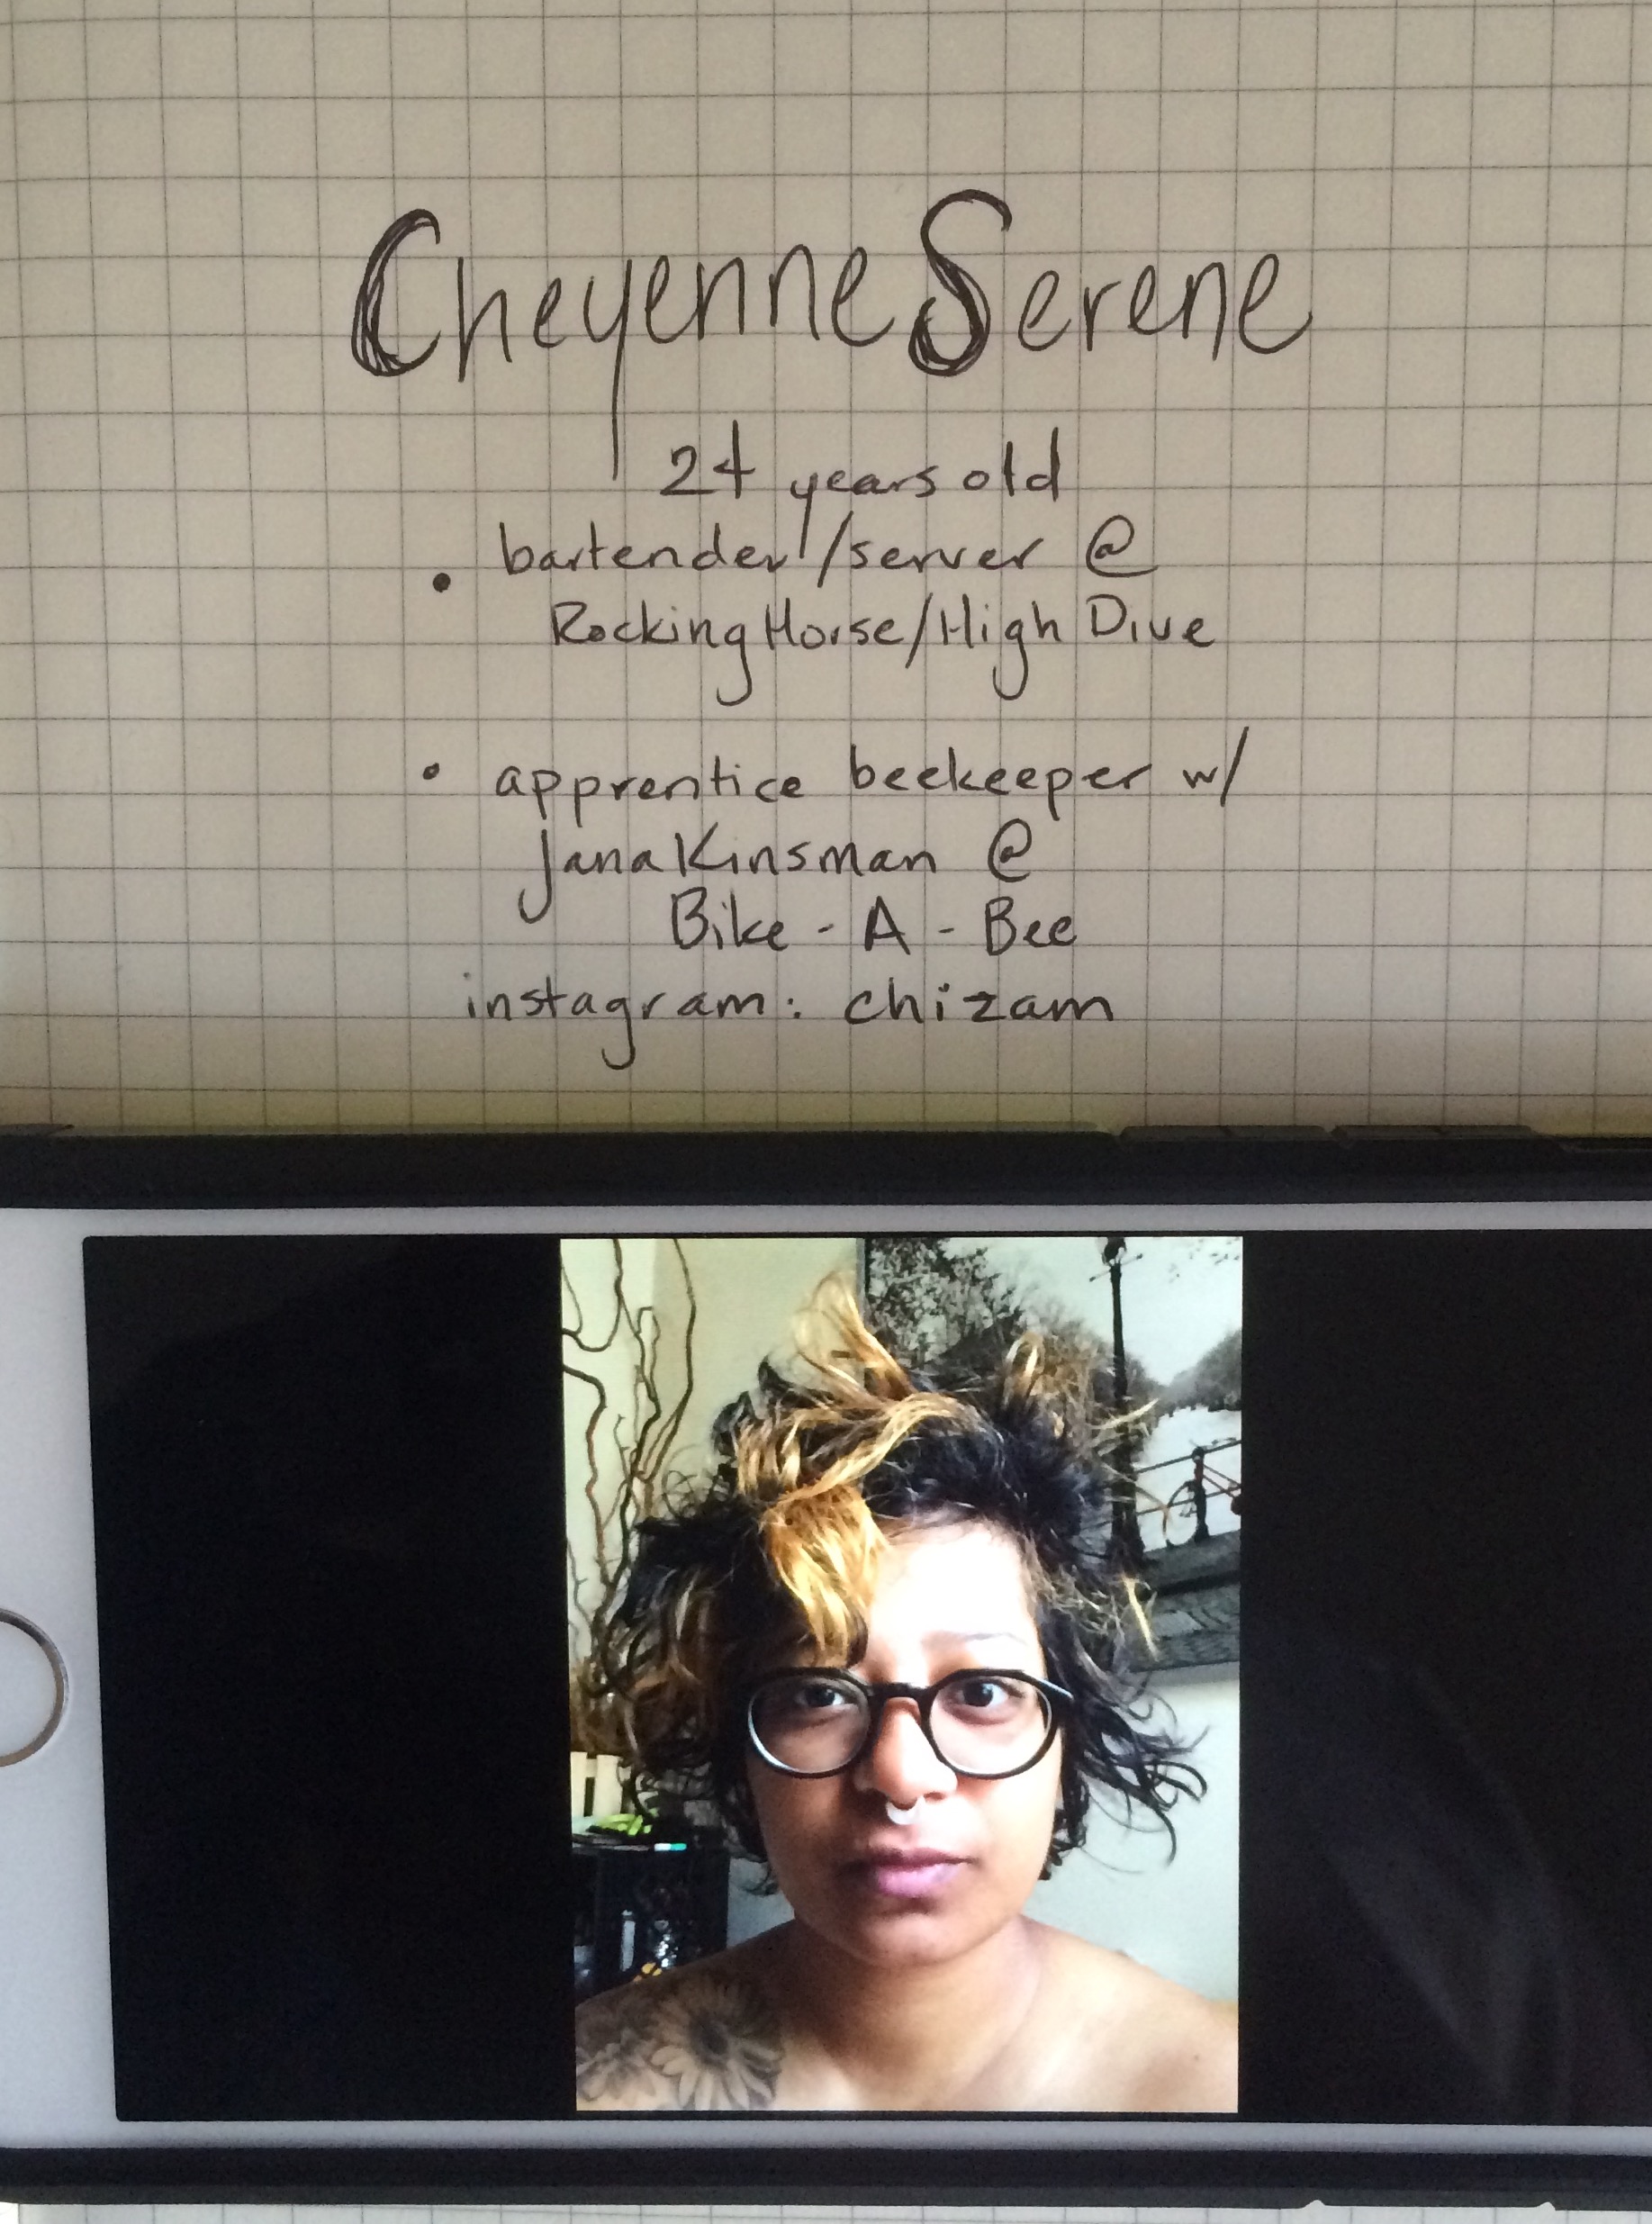 Cheyenne Serene
24 years old
• bartender/server @
Rocking Horse/High Dive
• apprentice beekeeper w/
Jana Kinsman @
Bike - A - Bee
instagram: chizam